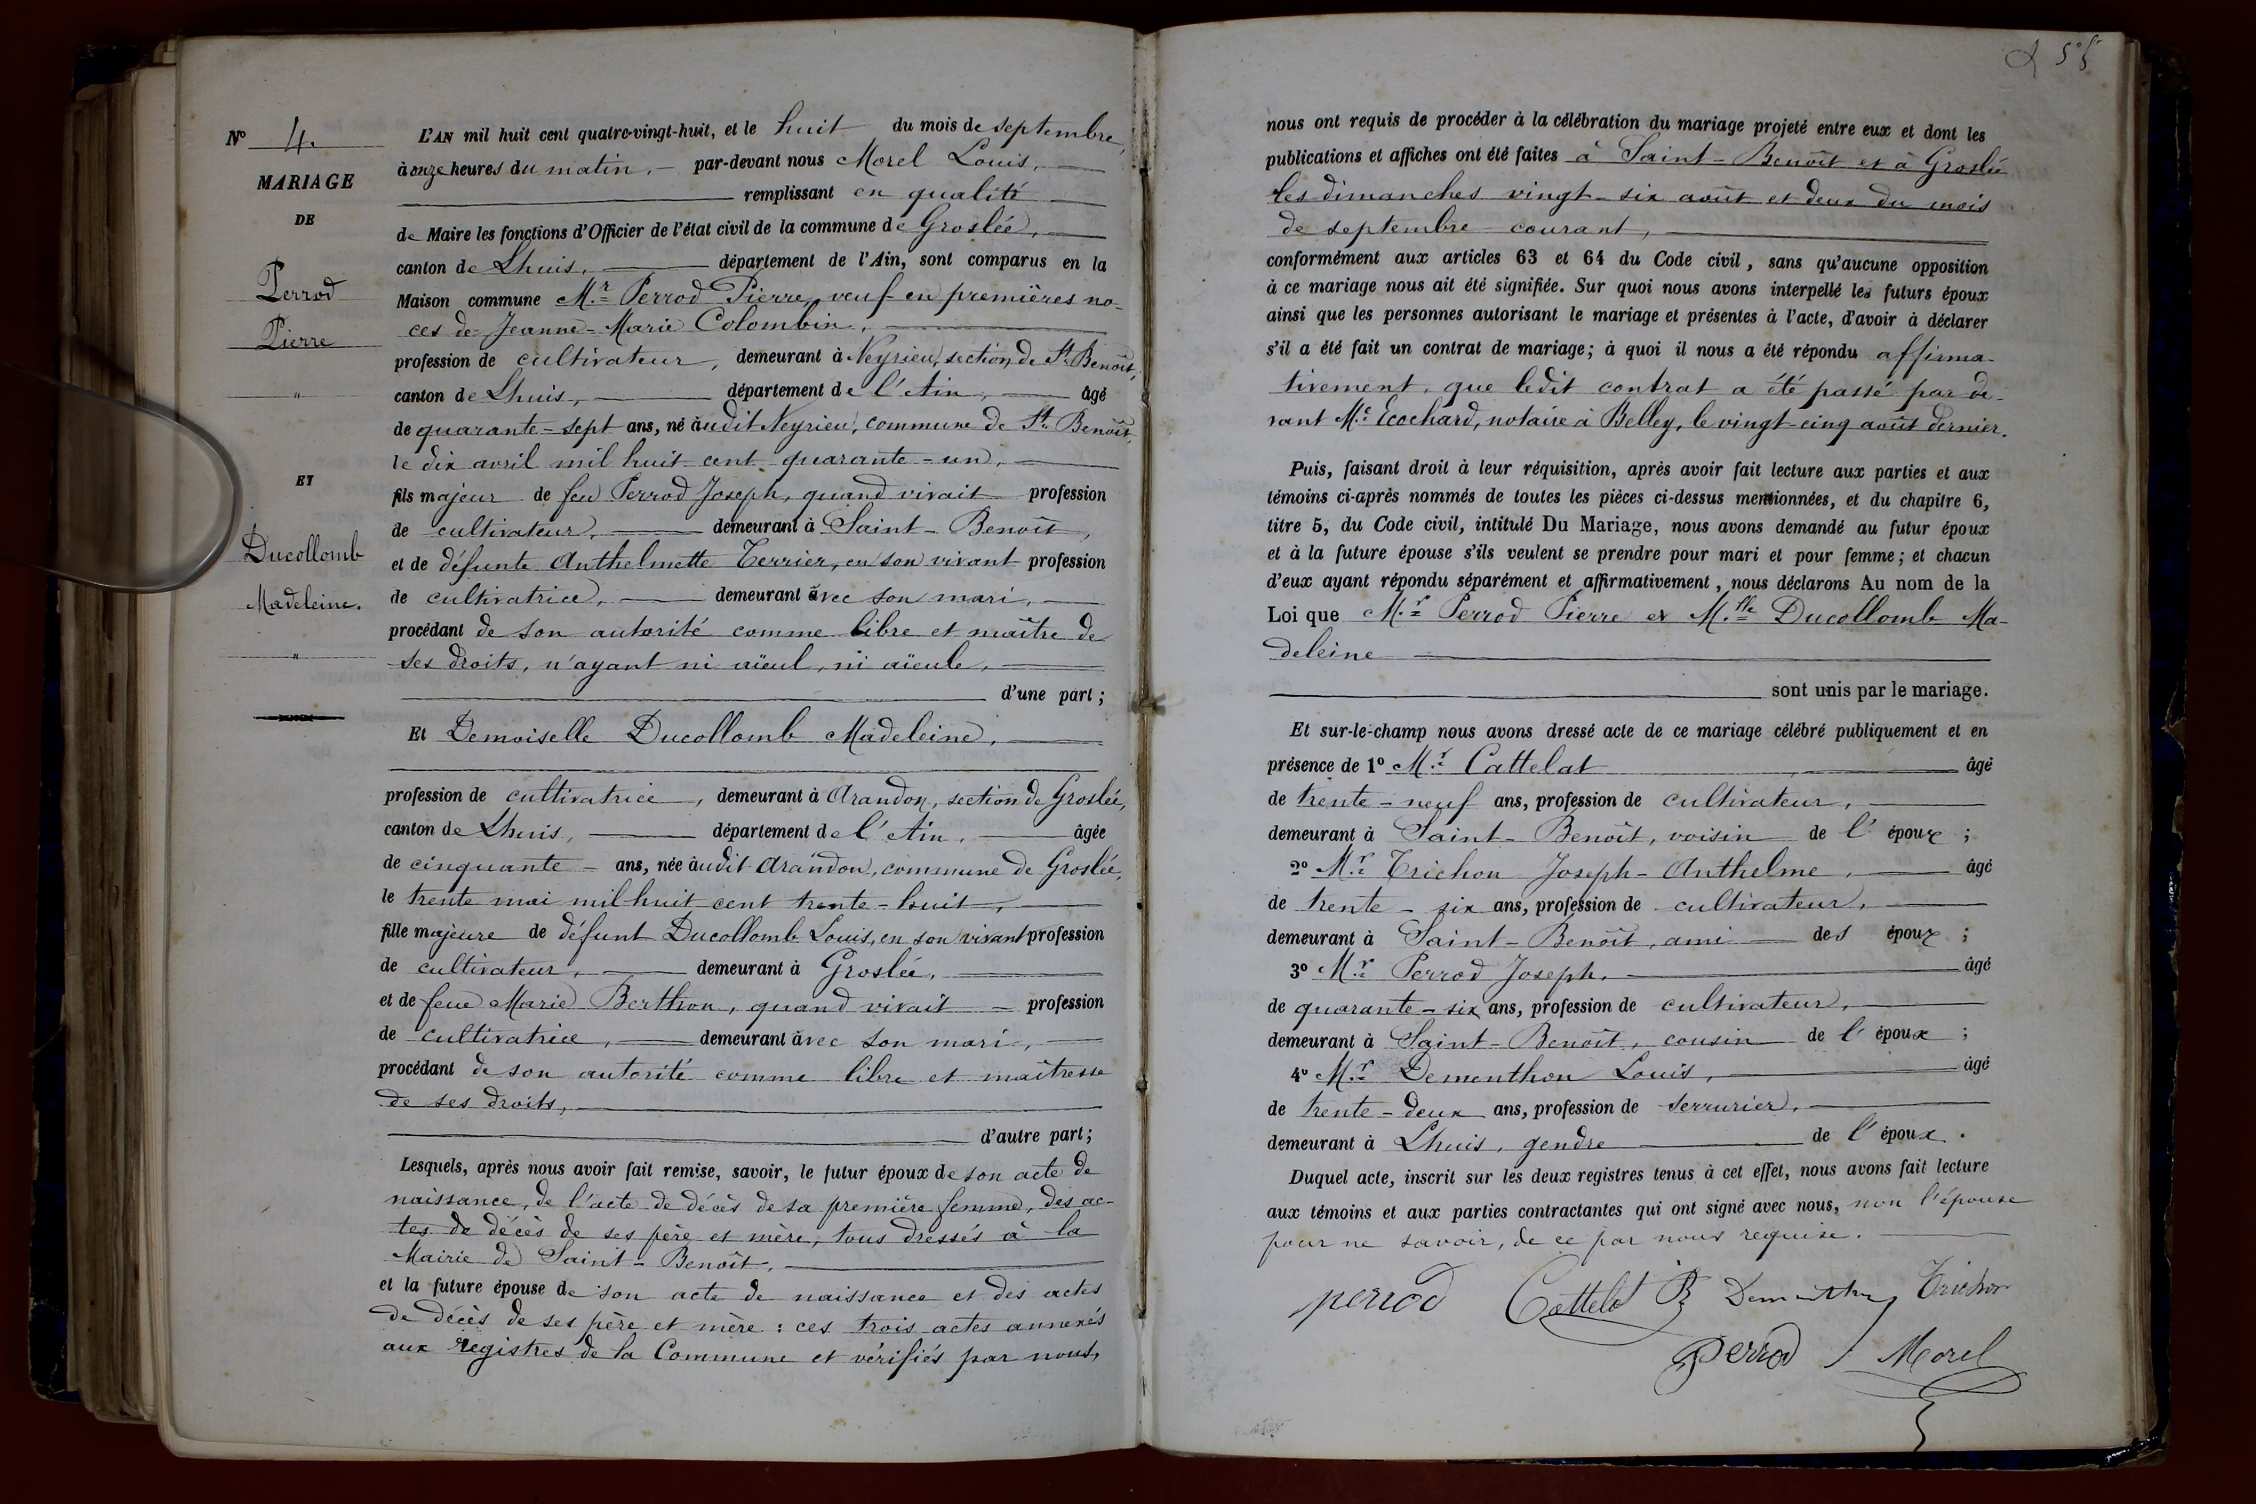 N° 4.
MARIAGE
DE
Perrod
Pierre
"
ET
Ducollomb
Madeleine.
"
L'AN mil huit cent quatre-vingt-huit, et le huit du mois de septembre,
à onze heures du matin, par-devant nous Morel Louis,
remplissant en qualité
de Maire les fonctions d'Officier de l'état civil de la commune de Groslée,
canton de Lhuis, département de l'Ain, sont comparus en la
Maison commune M.r Perrod Pierre, veuf en premières no-
ces de Jeanne-Marie Colombin,
profession de cultivateur, demeurant à Neyrieu, section de St Benoît,
canton de Lhuis, département de l'Ain, âgé
de quarante-sept ans, né audit Neyrieu, commune de St Benoît,
le dix avril mil huit cent quarante-un,
fils majeur de feu Perrod Joseph, quand vivait profession
de cultivateur, demeurant à Saint-Benoît,
et de défunte Anthelmette Terrier, en son vivant profession
de cultivatrice, demeurant avec son mari,
procédant de son autorité comme libre et maître de
ses droits, n'ayant ni aïeul, ni aïeule,
d'une part ;
Et Demoiselle Ducollomb Madeleine,
profession de cultivatrice, demeurant à Arandon, section de Groslée,
canton de Lhuis, département de l'Ain, âgée
de cinquante ans, née audit Arandon, commune de Groslée,
le trente mai mil huit cent trente-huit,
fille majeure de défunt Ducollomb Louis, en son vivant profession
de cultivateur, demeurant à Groslée,
et de feue Marie Berthon, quand vivait profession
de cultivatrice, demeurant avec son mari,
procédant de son autorité comme libre et maîtresse
de ses droits,
d'autre part ;
Lesquels, après nous avoir fait remise, savoir, le futur époux de son acte de
naissance, de l'acte de décès de sa première femme, des ac-
tes de décès de ses père et mère, tous dressés à la
Mairie de Saint-Benoît,
et la future épouse de son acte de naissance et des actes
de décès de ses père et mère : ces trois actes annexés
aux registres de la Commune et vérifiés par nous,
55
nous ont requis de procéder à la célébration du mariage projeté entre eux et dont les
publications et affiches ont été faites à Saint-Benoît et à Groslée
les dimanches vingt-six août et deux du mois
de septembre courant,
conformément aux articles 63 et 64 du Code civil, sans qu'aucune opposition
à ce mariage nous ait été signifiée. Sur quoi nous avons interpellé les futurs époux
ainsi que les personnes autorisant le mariage et présentes à l'acte, d'avoir à déclarer
s'il a été fait un contrat de mariage ; à quoi il nous a été répondu affirma-
tivement, que ledit contrat a été passé par de-
vant M.e Ecochard, notaire à Belley, le vingt-cinq août dernier.
Puis, faisant droit à leur réquisition, après avoir fait lecture aux parties et aux
témoins ci-après nommés de toutes les pièces ci-dessus mentionnées, et du chapitre 6,
titre 5, du Code civil, intitulé Du Mariage, nous avons demandé au futur époux
et à la future épouse s'ils veulent se prendre pour mari et pour femme ; et chacun
d'eux ayant répondu séparément et affirmativement, nous déclarons Au nom de la
Loi que M.r Perrod Pierre et M.lle Ducollomb Ma-
deleine
sont unis par le mariage.
Et sur-le-champ nous avons dressé acte de ce mariage célébré publiquement et en
présence de 1° M.r Cattelat âgé
de trente-neuf ans, profession de cultivateur,
demeurant à Saint-Benoît, voisin de l'époux ;
2° M.r Trichon Joseph-Anthelme, âgé
de trente-six ans, profession de cultivateur,
demeurant à Saint-Benoît, ami des époux ;
3° M.r Perrod Joseph, âgé
de quarante-six ans, profession de cultivateur,
demeurant à Saint-Benoît, cousin de l'époux ;
4° M.r Dementhon Louis, âgé
de trente-deux ans, profession de serrurier,
demeurant à Lhuis, gendre de l'époux.
Duquel acte, inscrit sur les deux registres tenus à cet effet, nous avons fait lecture
aux témoins et aux parties contractantes qui ont signé avec nous, non l'épouse
pour ne savoir, de ce par nous requise.
perrod Cattelat B Dementhon Trichon
Perrod Morel